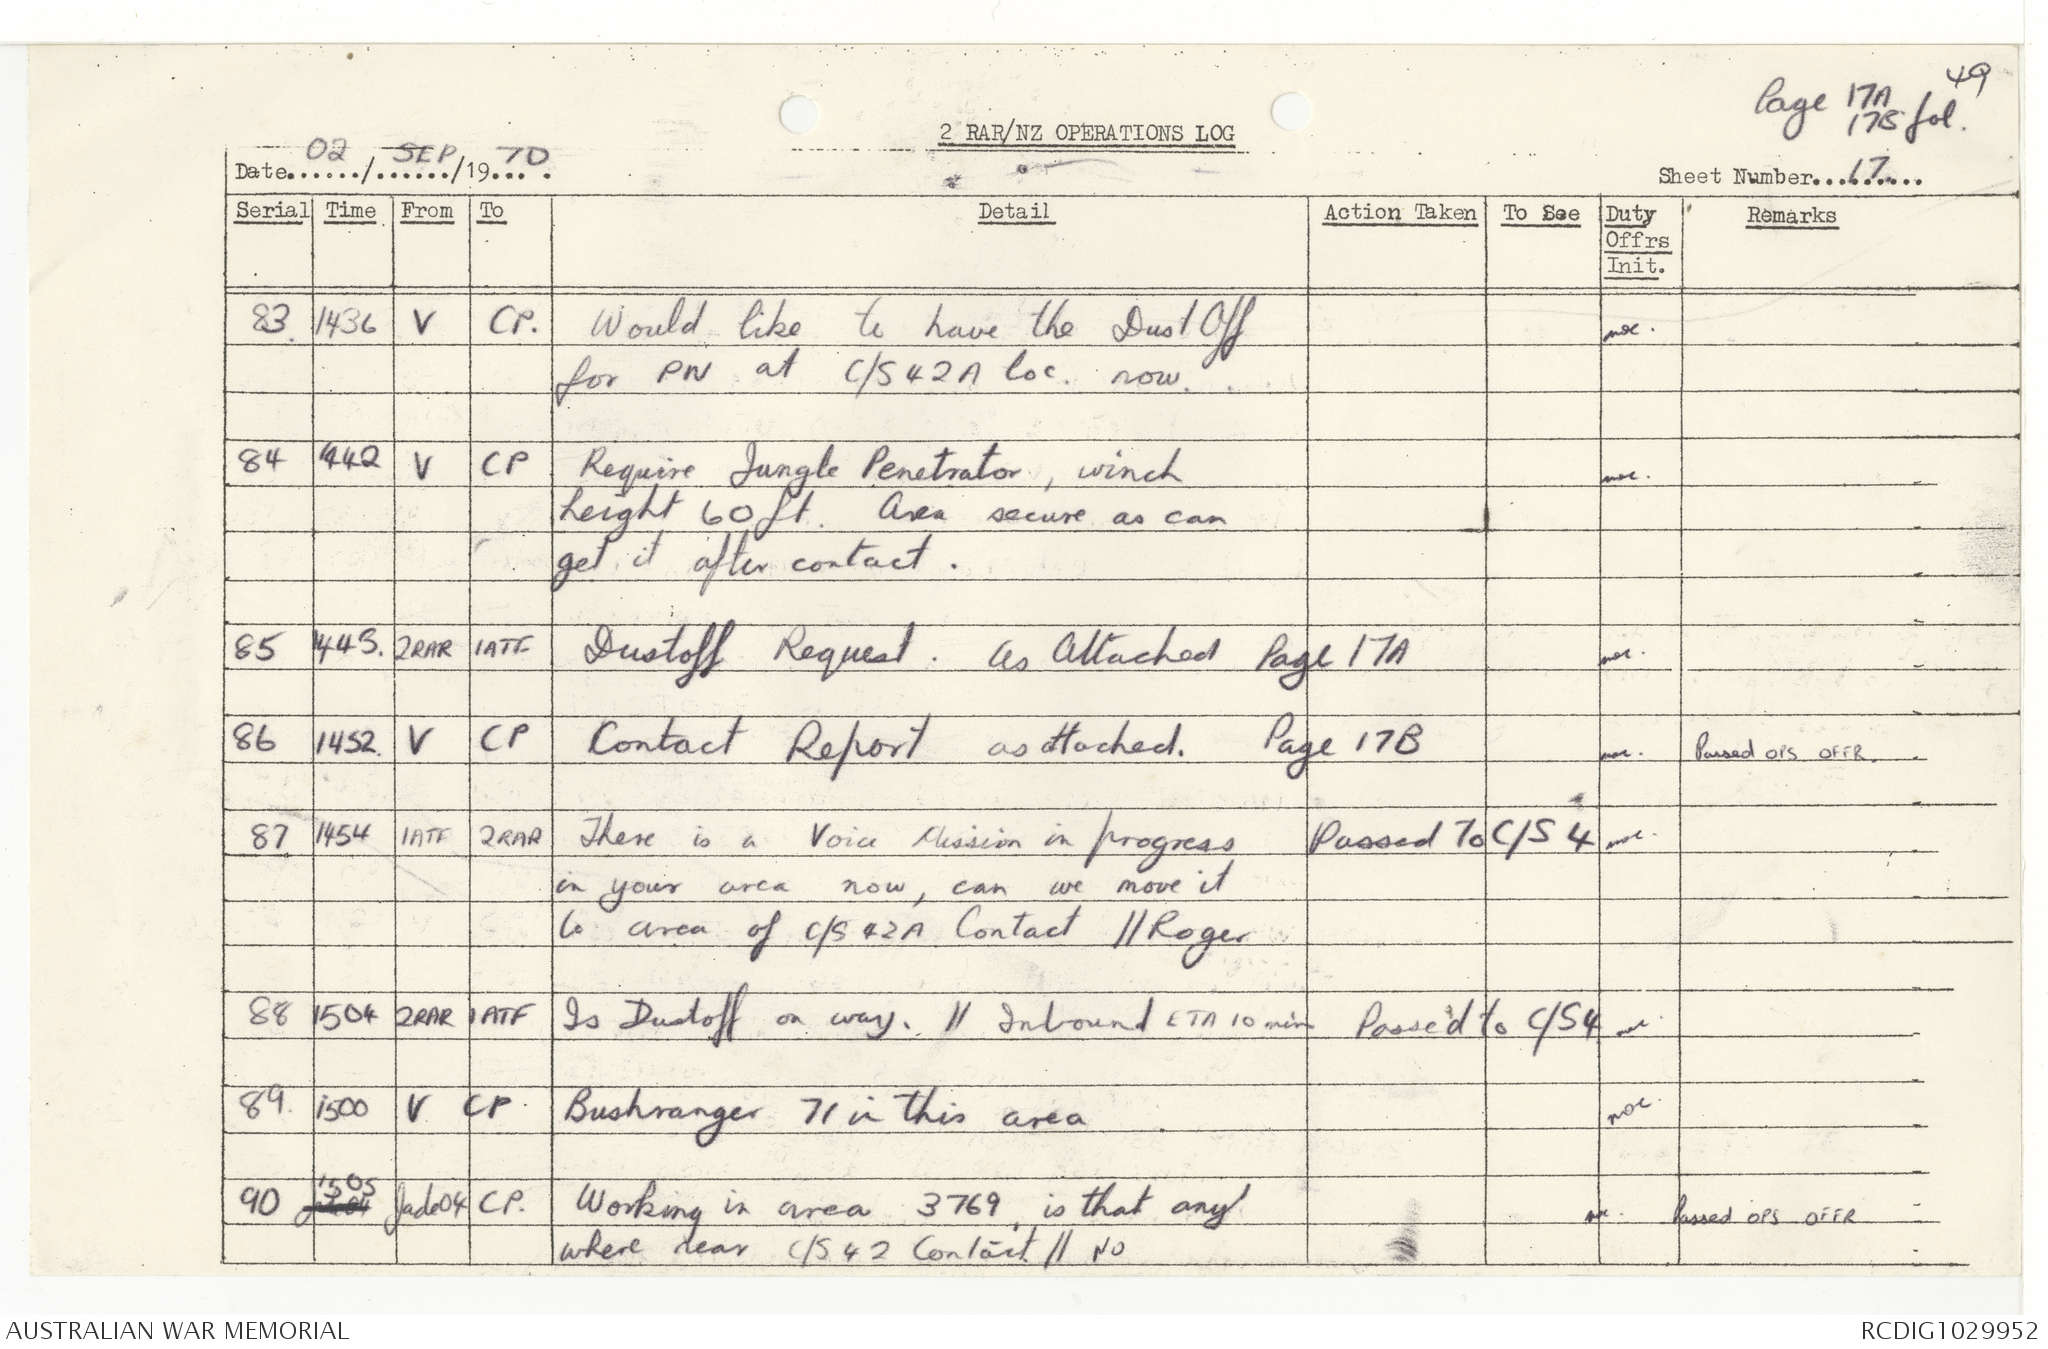 49
Page 17A
17B fol.
2 RAR/NZ OPERATIONS LOG
Date 02/SEP/1970
Sheet Number 17
Serial Time From To Detail Action Taken To See Duty Offrs Init. Remarks
83 1436 V CP. Would like to have the Dust Off
for PW at C/S 42A loc. now.
84 1442 V CP Require Jungle Penetrator, winch
height 60 ft. Area secure as can
get it after contact.
85 1443. 2RAR 1ATF Dustoff Request. as Attached Page 17A
86 1452. V CP Contact Report as attached. Page 17B Passed OPS OFFR.
87 1454 1ATF 2RAR There is a Voice Mission in progress Passed To C/S 4
in your area now, can we move it
to area of C/S 42A Contact // Roger
88 1504 2RAR 1ATF Is Dustoff on way. // Inbound ETA 10 min Passed to C/S4
89. 1500 V CP. Bushranger 71 in this area
90 1505 Jade04 CP. Working in area 3769, is that any Passed OPS OFFR
where near C/S 42 Contact. // NO
AUSTRALIAN WAR MEMORIAL
RCDIG1029952